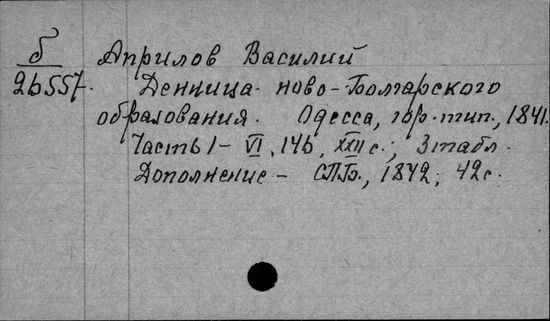 б Априлов Василий
26557. Денница ново-Болгарского
образования. Одесса, гор. тип., 1841.
Часть 1 - VI, 146, XXII с.; 3 табл.
Дополнение - СПБ., 1842; 42 с.